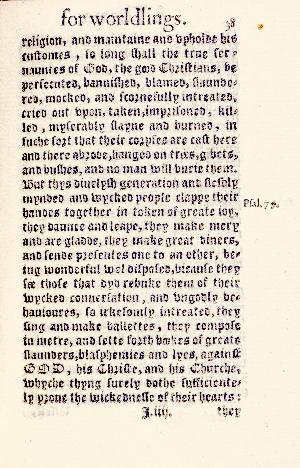 for worldlings. 38
religion, and maintaine and vpholde his
customes, so long shall the true ser-
nauntes of God, the good Christians, be
persecuted, bannished, blamed, slaunde-
red, mocked, and scornefully intreated,
cried out vpon, taken, imprisoned, kil-
led, myserably slayne and burned, in
suche sort that their corpses are cast here
and there abrode, hanged on trees, gibets,
and bushes, and no man will burie them.
But thys diuelysh generation and fleshly
mynded and wycked people clappe their
handes together in token of greate ioy, Psal.79.
they daunce and leape, they make mery
and are gladde, they make great diners,
and sende presentes one to an other, be-
ing wonderful wel disposed, bicause they
see those that dyd rebuke them of their
wycked conuersation, and vngodly be-
hauioures, so irkesomly intreated, they
sing and make ballettes, they compose
in metre, and sette forth bookes of greate
slaunders, blasphemies and lyes, against
GOD, his Christe, and his Churche,
whyche thyng surely dothe sufficiente-
ly proue the wickednesse of their hearts:
J.iiij. they